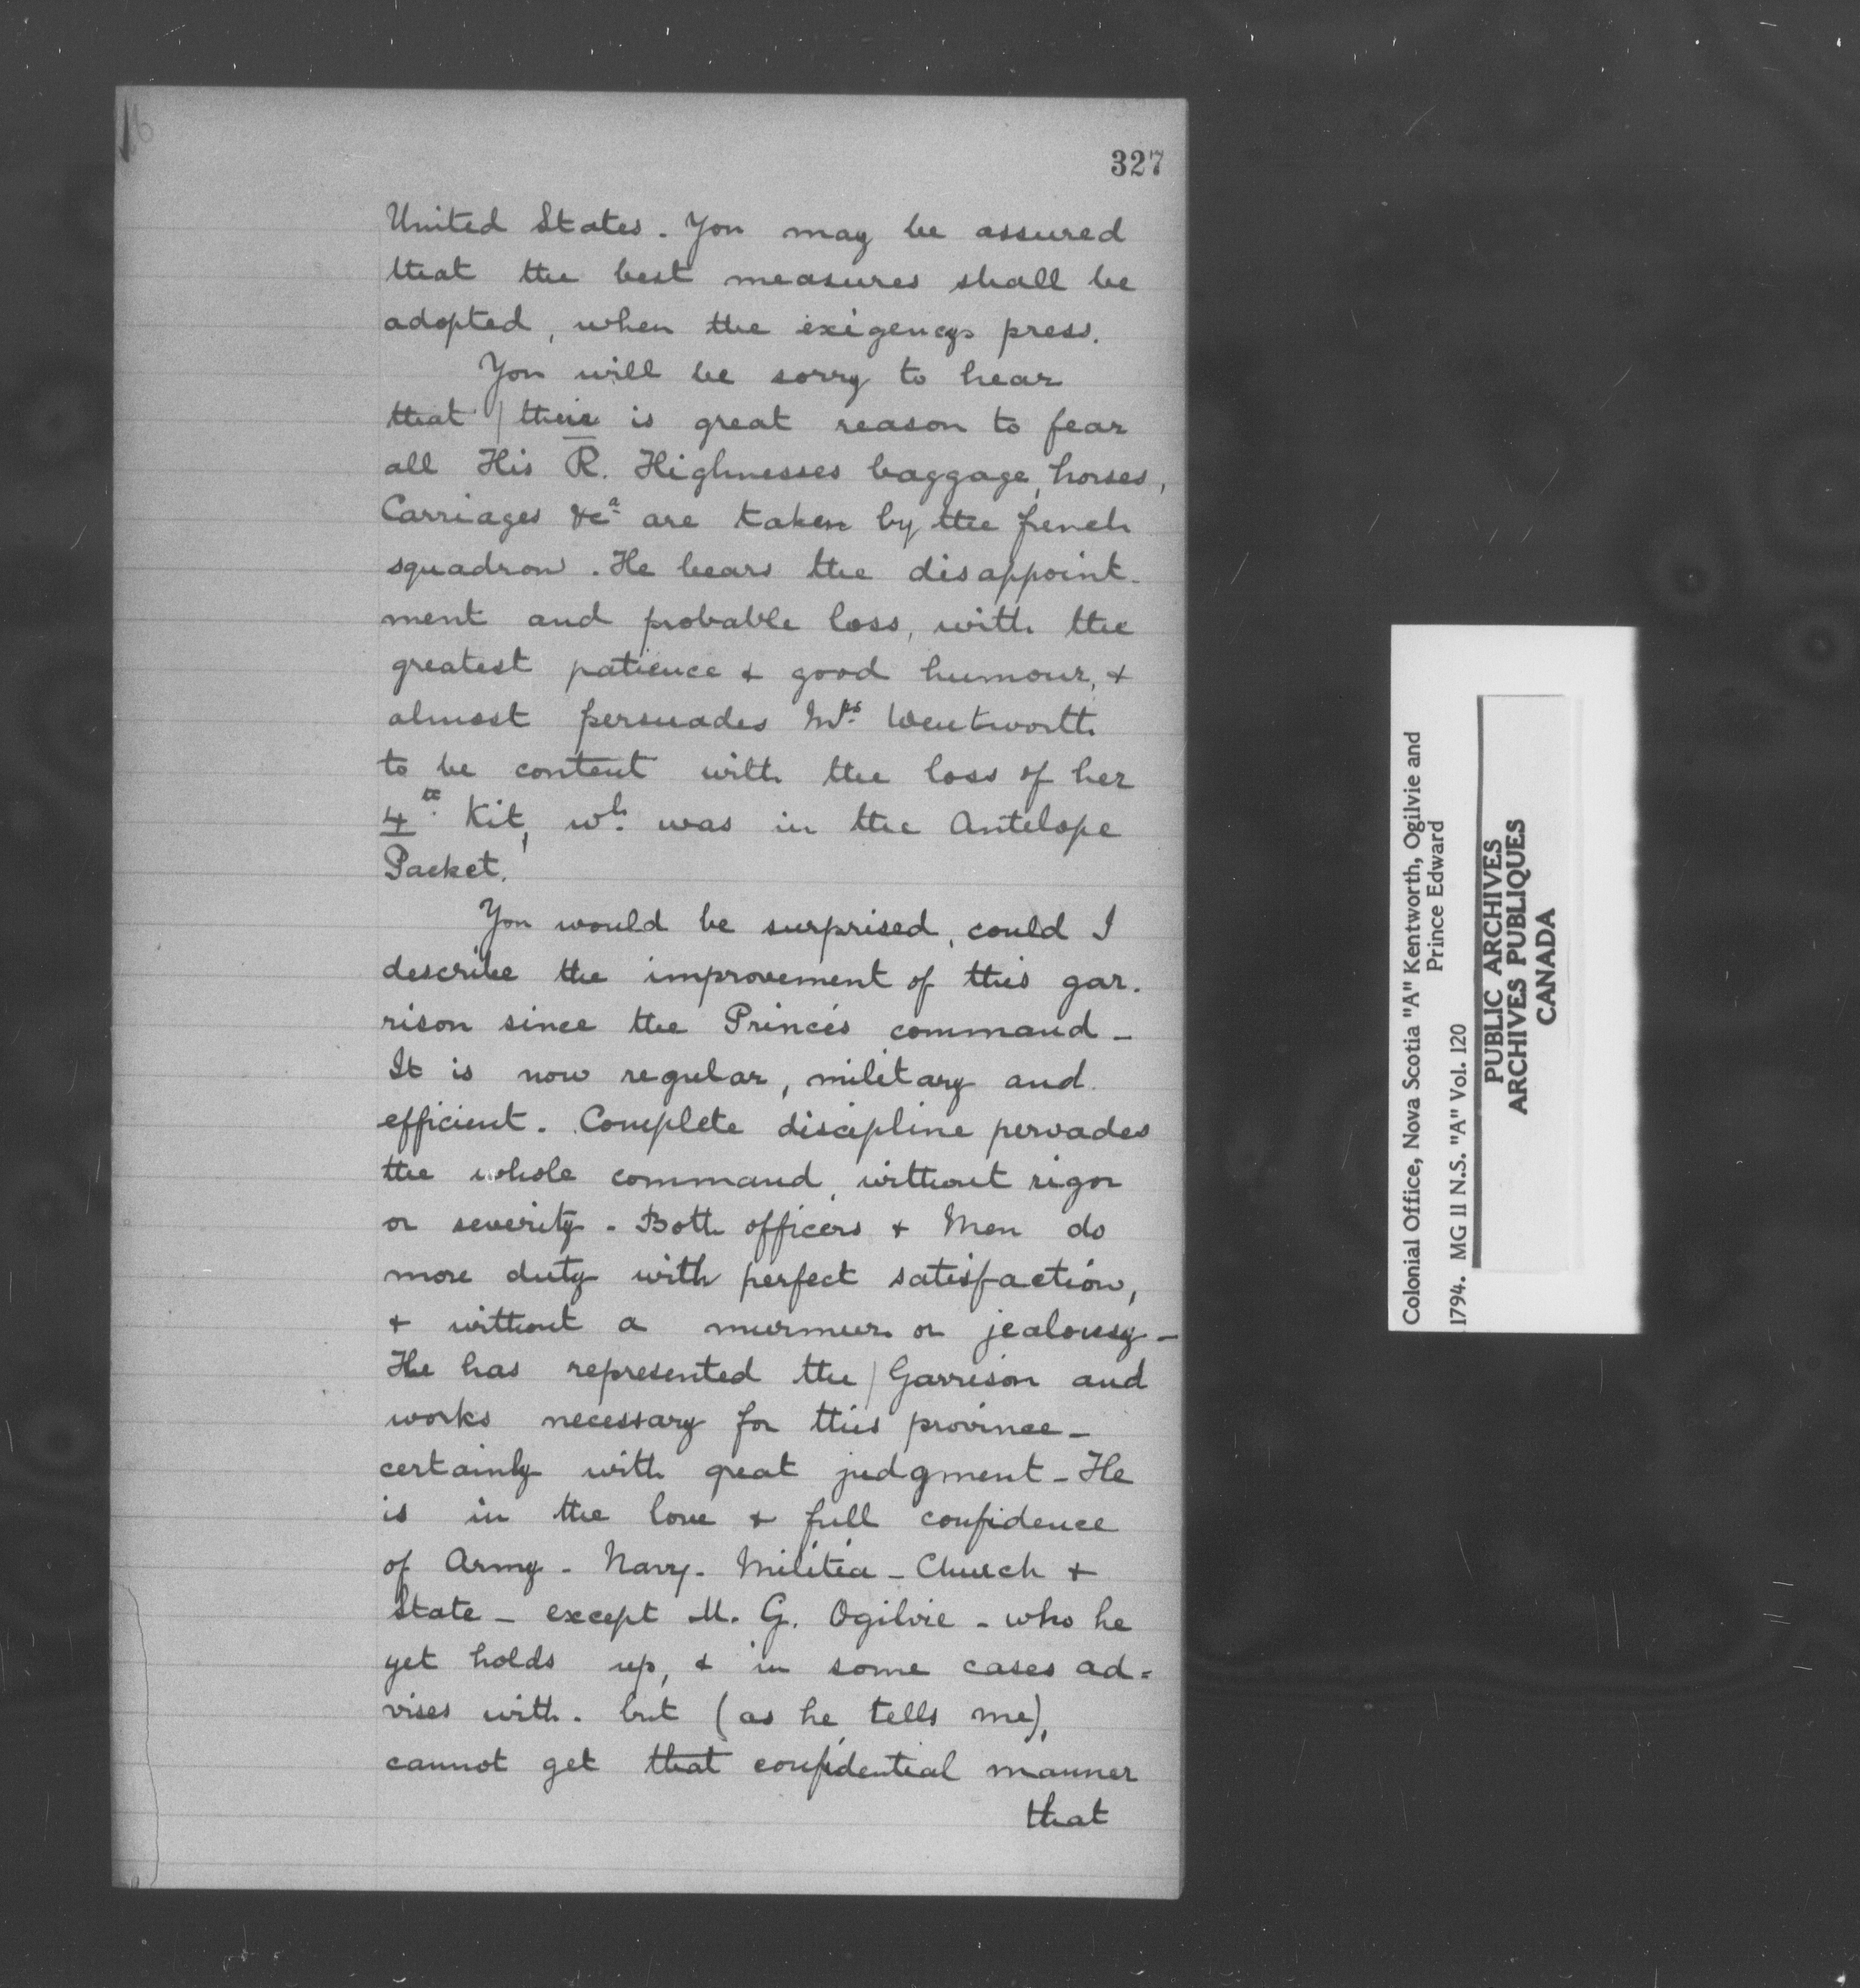 327
United States. You may be assured
that the best measures shall be
adopted, when the exigencys press.
You will be sorry to hear
that / there is great reason to fear
all His R. Highnesses baggage, horses,
Carriages &cª are taken by the french
squadron. He bears the disappoint-
ment and probable loss, with the
greatest patience & good humour, &
almost persuades Mrs. Wentworth
to be content with the loss of her
4th Kit, wh. was in the Antelope
Packet.
You would be surprised, could I
describe the improvement of this gar-
rison since the Prince's command -
It is now regular, military and
efficient. Complete discipline pervades
the whole command, without rigor
or severity - Both officers & Men do
more duty with perfect satisfaction,
& without a murmur or jealousy -
He has represented the / Garrison and
works necessary for this province -
certainly with great judgment - He
is in the love & full confidence
of Army - Navy - Militia - Church &
State - except M. G. Ogilvie - who he
yet holds up, & in some cases ad=
vises with. but (as he tells me),
cannot get that confidential manner
that
Colonial Office, Nova Scotia "A" Kentworth, Ogilvie and
Prince Edward
1794. MG 11 N.S. "A" Vol. 120
PUBLIC ARCHIVES
ARCHIVES PUBLIQUES
CANADA